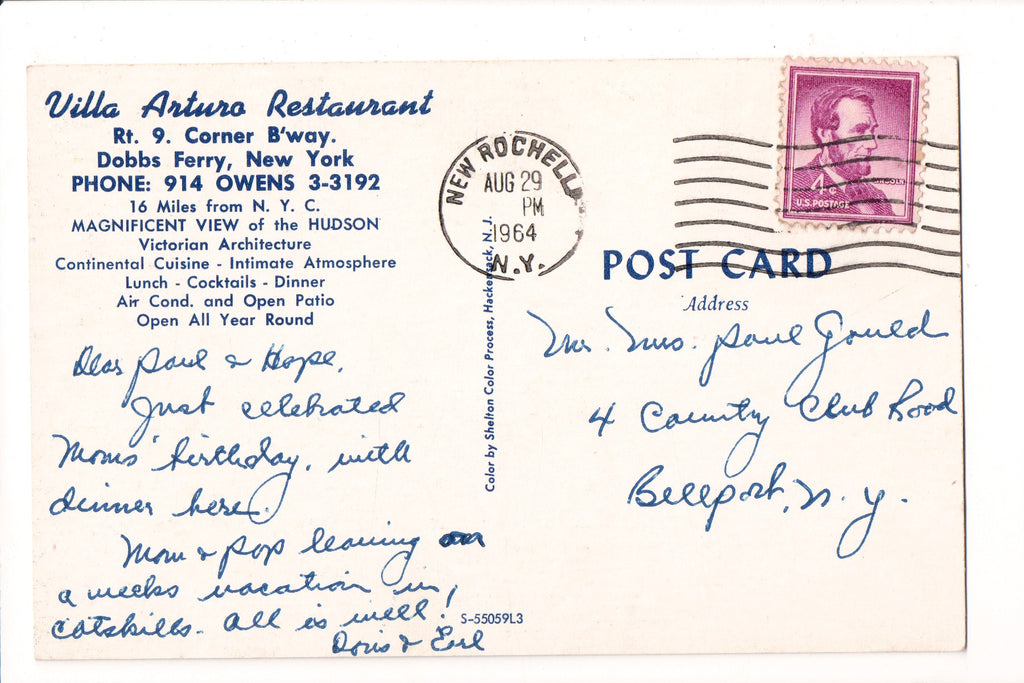 Villa Arturo Restaurant
Rt. 9. Corner B'way.
Dobbs Ferry, New York
PHONE: 914 OWENS 3-3192
16 Miles from N. Y. C.
MAGNIFICENT VIEW of the HUDSON
Victorian Architecture
Continental Cuisine - Intimate Atmosphere
Lunch - Cocktails - Dinner
Air Cond. and Open Patio
Open All Year Round
Dear Paul & Hope,
Just celebrated
Moms' birthday, with
dinner here.
Mom & Pop leaving on
a weeks vacation in
Catskills. All is well!
Doris & Earl
S-55059L3
Color by Shelton Color Process, Hackensack, N. J.
NEW ROCHELLE
AUG 29
PM
1964
N.Y.
4c
U.S. POSTAGE
LINCOLN
POST CARD
Address
Mr. Mrs. Paul Gould
4 Country Club Road
Bellport, N. Y.